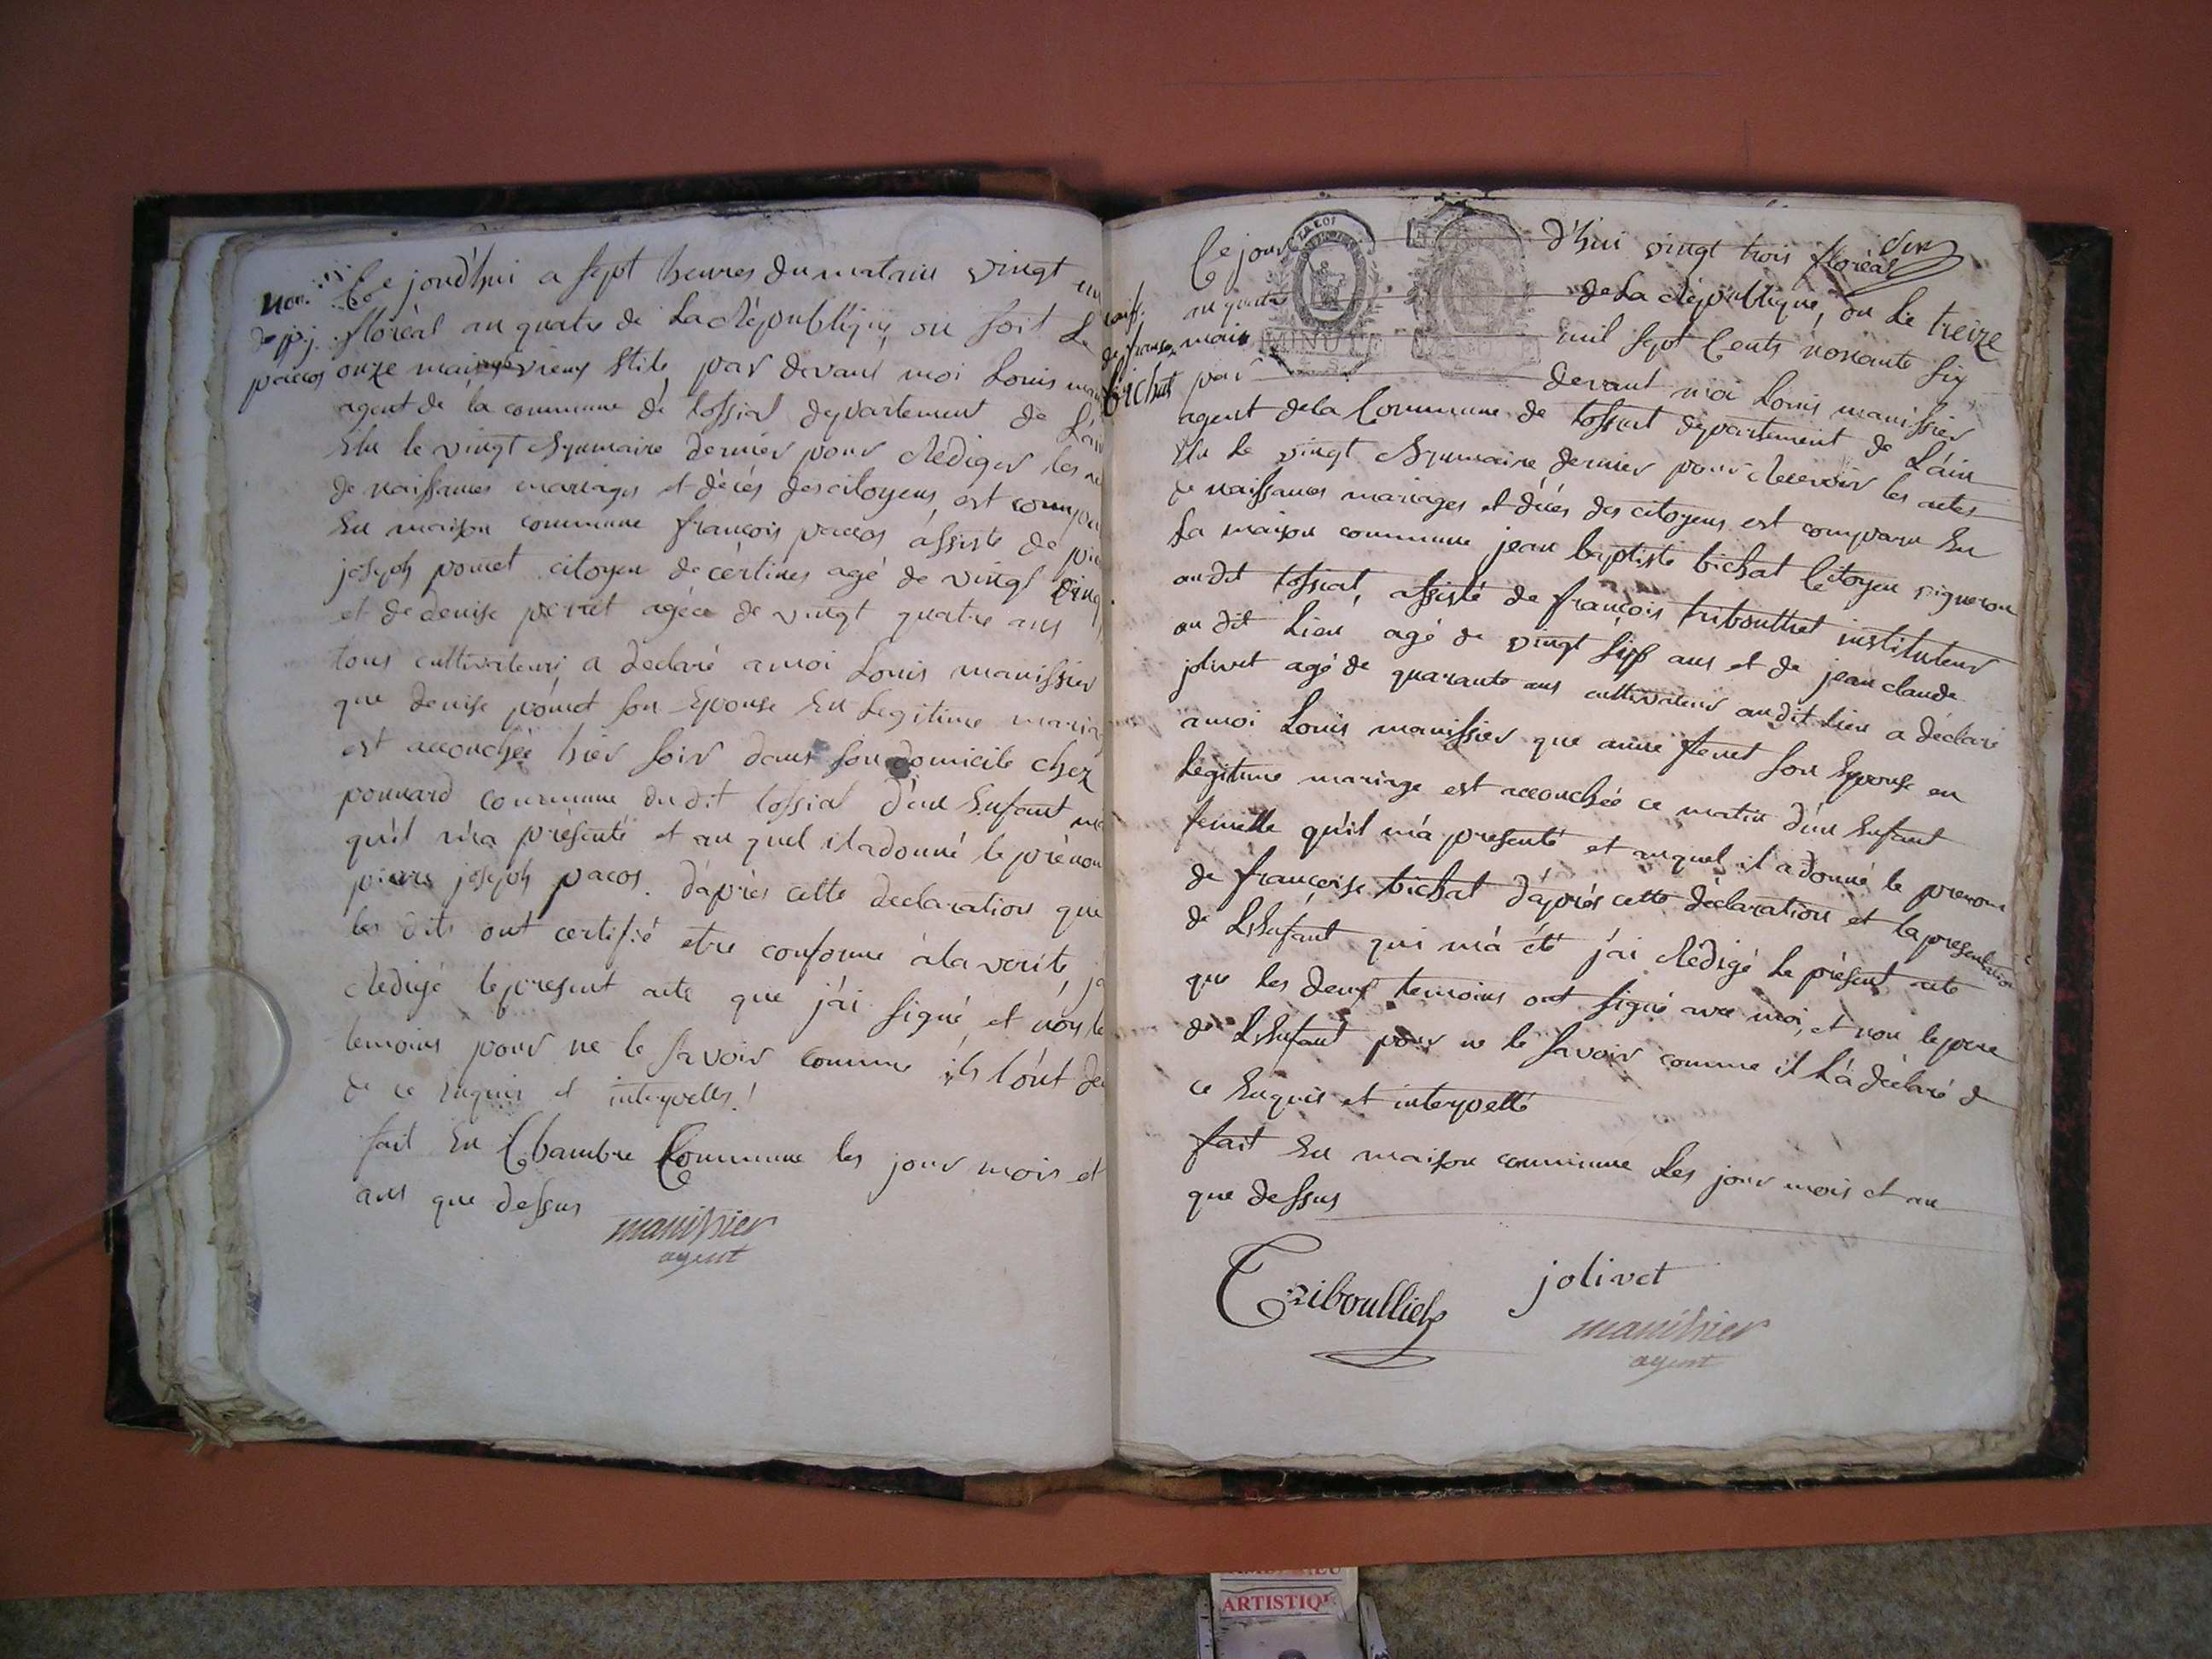 de p. j.
paccos
Ce jourd'hui a sept heures du matain vingt un
floréal an quatre de La République, ou soit Le
onze mai vieux stile par devant moi Louis
agent de la commune de tossiat departement de
Elu le vingt Brumaire dernier pour Rediger les
de naissances mariages et décés des citoyens, est
En maison commune françois paccos assisté de
joseph pomet citoyen de cértines agé de vingt cinq
et de denise perret agée de vingt quatre ans
tous cultivateurs, a declaré a moi Louis manissier
que denise pomet son Epouse En Legitime
est accouchée hier soir dans son domicile chez
ponnard commune du dit tossiat d'un Enfant
qu'il m'a présenté et au quel il a donné le prénom
pierre joseph pacos. d'aprés cette declaration que
les dits ont certifié etre conforme à la verité, j'ai
Redigé le present acte que j'ai signé, et non le
temoins pour ne le savoir comme ils l'ont
de ce Enquis et interpellés!
fait En Chambre Commune les jour mois et
ans que dessus
manissier
agent
de franse
bichat
LA LOI
MINUTE
Ce jour d'hui vingt trois floréal
an quatre de La République, ou Le treize
mai mil sept Cents nonante six
par devant moi Louis manissier
agent de la Commune de tossiat département de L'ain
Elu Le vingt Brumaire dernier pour Recevoir les actes
de naissances mariages et décés des citoyens est comparu En
La maison commune jean baptiste bichat Citoyen vigneron
au dit tossiat, assisté de françois tribouthet instituteur
au dit Lieu agé de vingt sept ans et de jean claude
jolivet agé de quarante ans cultivateur audit Lieu a déclaré
a moi Louis manissier que anne son Epouse en
Légitime mariage est accouchée ce matin d'un Enfant
femelle qu'il m'a presenté et auquel il a donné le prenom
de françoise bichat d'aprés cette déclaration et la presentation
de L'Enfant qui m'a été j'ai Redigé Le présent acte
que les deux temoins ont signé avec moi, et non le pere
de L'Enfant pour ne le savoir comme il L'a déclaré de
ce Enquis et interpellé
fait En maison commune Les jour mois et an
que dessus
Triboulliet jolivet
manissier
agent
ARTISTIQU